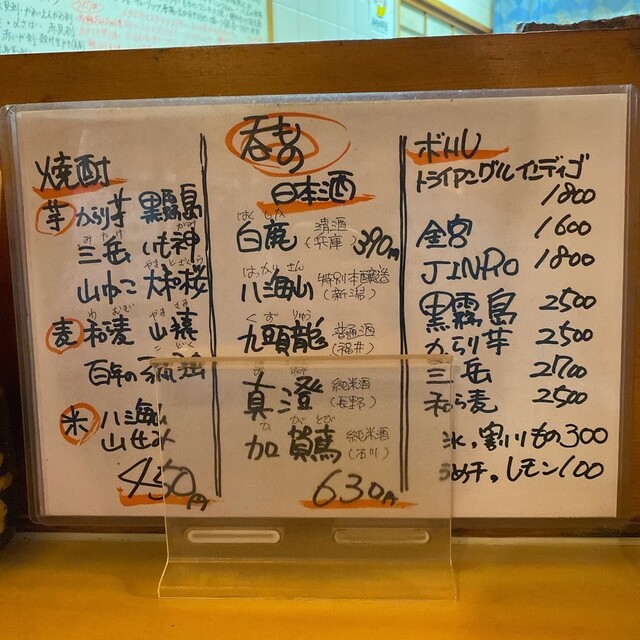 呑もの
焼酎
芋 からり芋 黒霧島
三岳 いも神
山ねこ 大和桜
麦 和ら麦 山猿
百年の孤独
米 八海山
450円
日本酒
白鹿 清酒(兵庫) 390円
八海山 特別本醸造(新潟)
九頭龍 普通酒(福井)
真澄 純米酒(長野)
加賀鳶 純米酒(石川)
630円
ボトル
トライアングルインディゴ
1800
金宮 1600
JINRO 1800
黒霧島 2500
からり芋 2500
三岳 2700
和ら麦 2500
氷、割りもの300
うめ干。レモン100